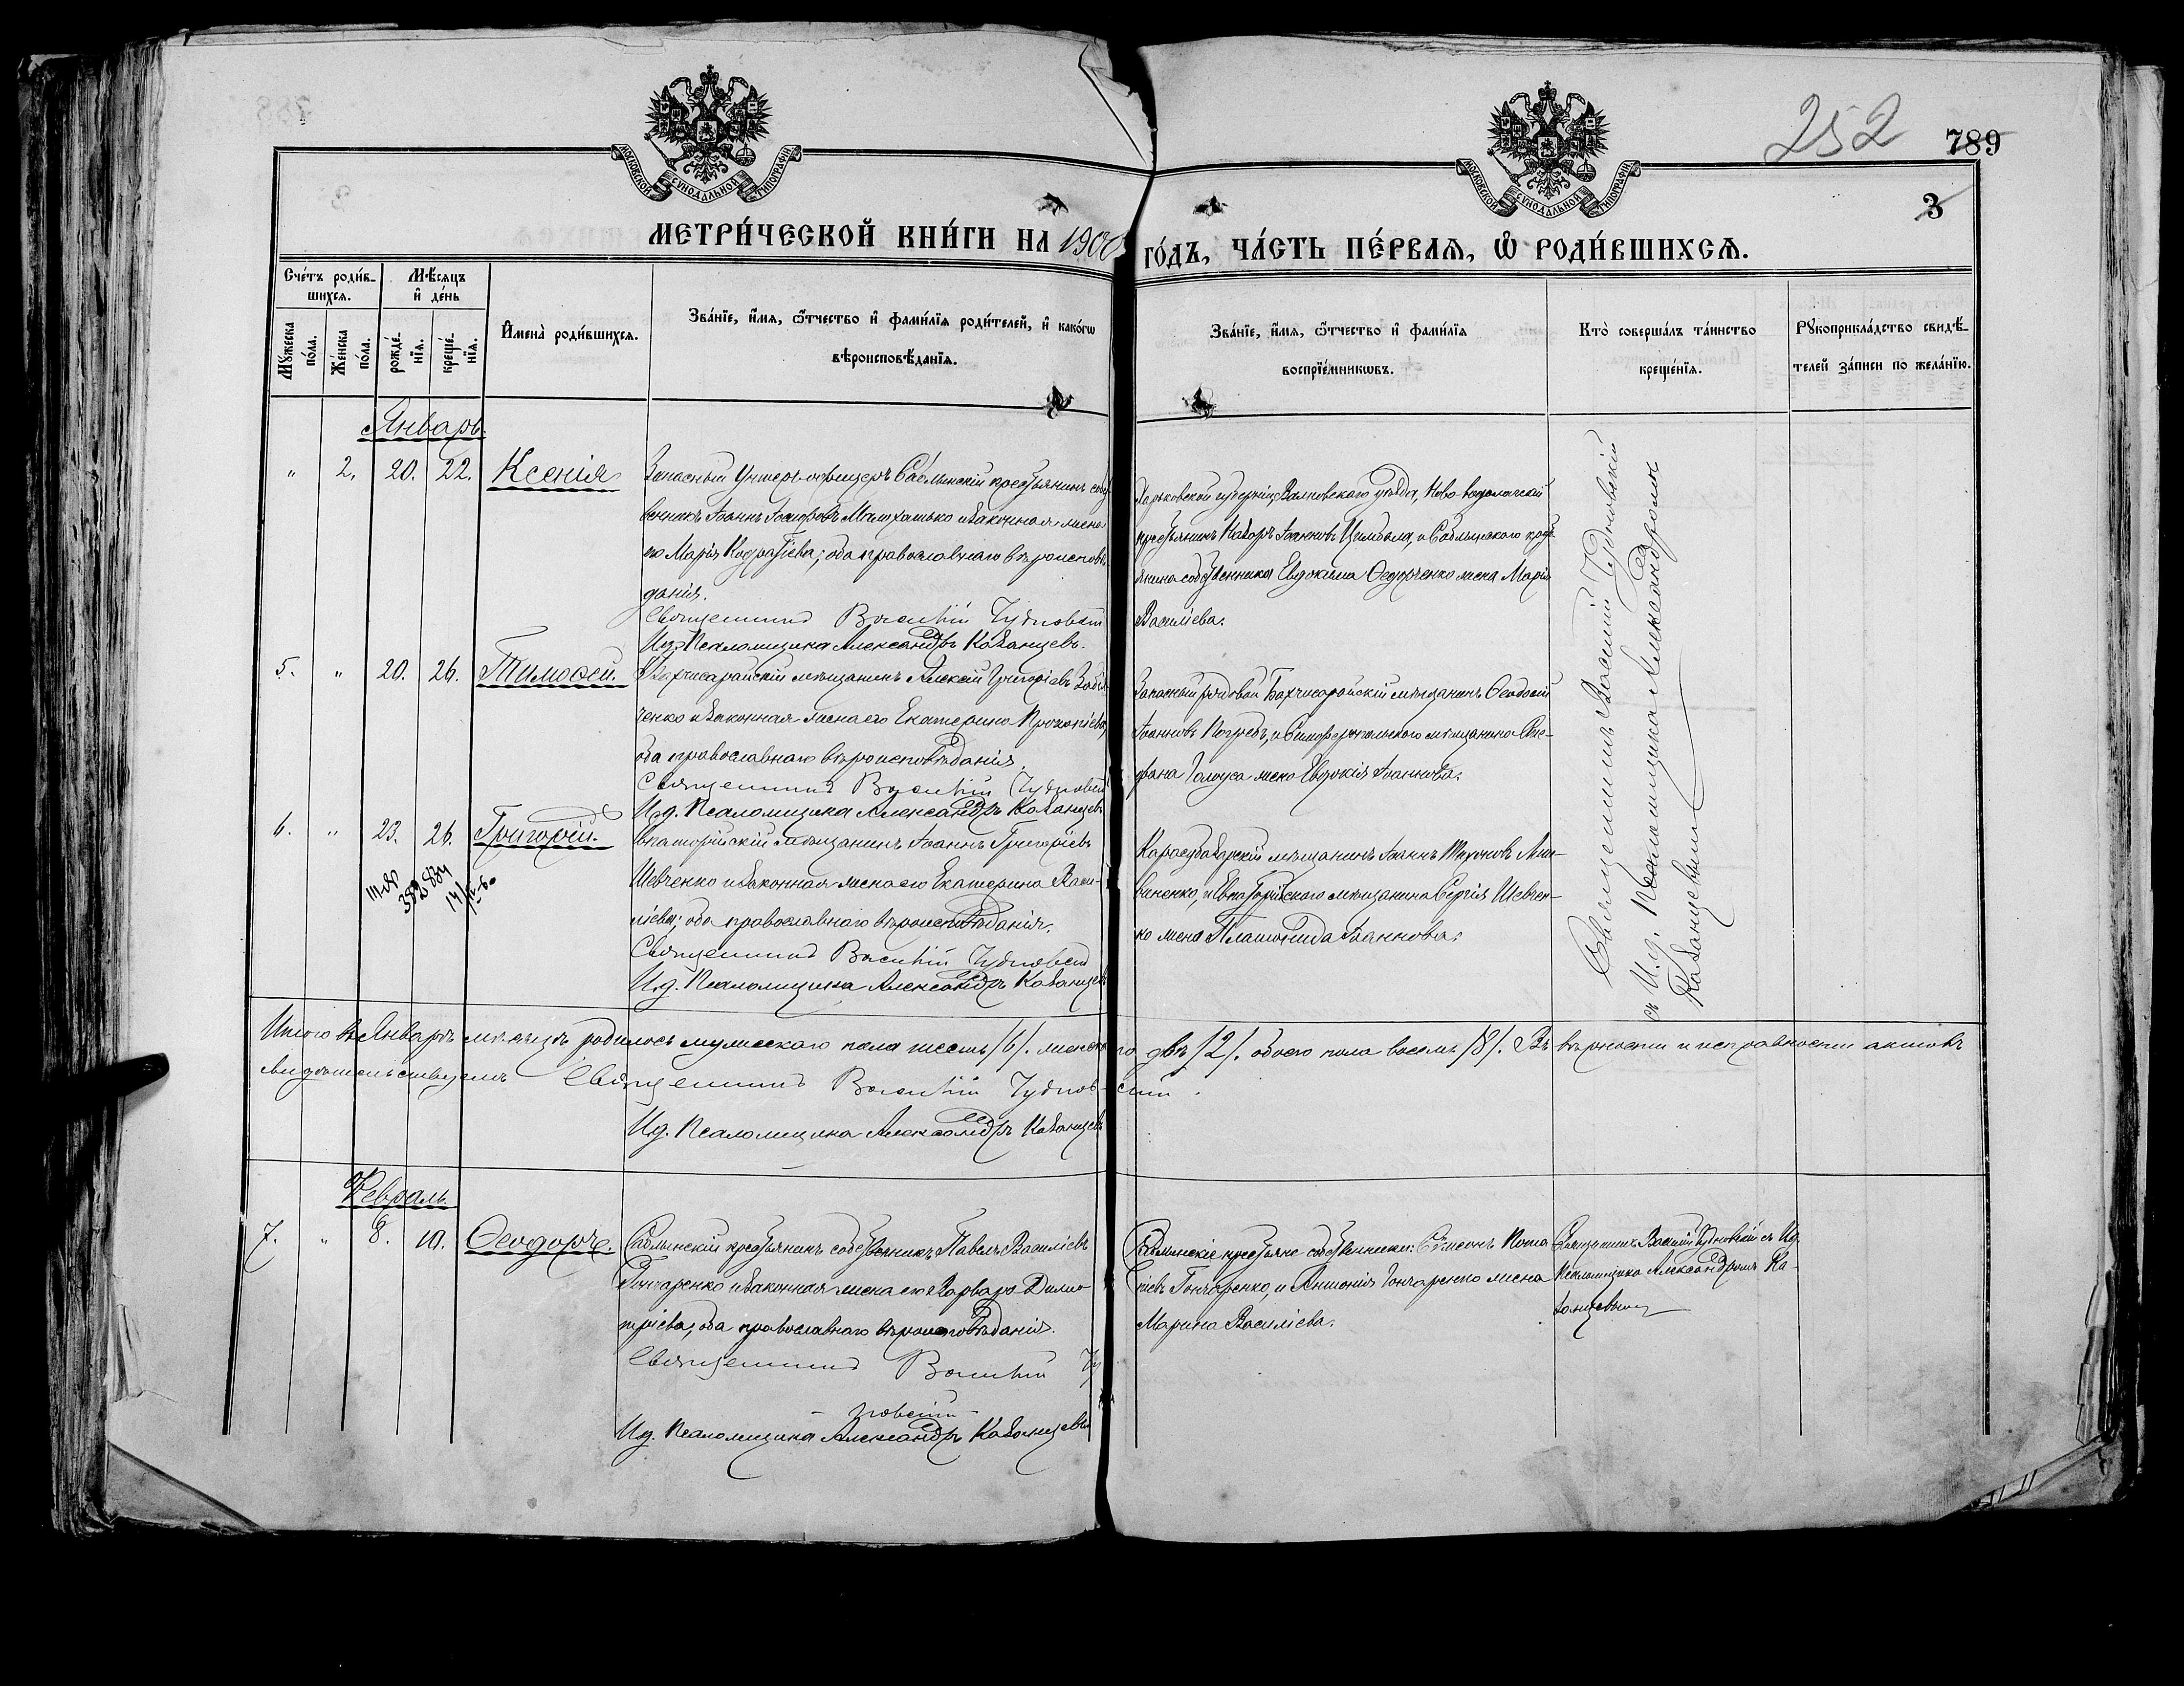 252
789
3
МОСКОВСКОЙ СУНОДАЛЬНОЙ ТИПОГРАФІИ
МОСКОВСКОЙ СУНОДАЛЬНОЙ ТИПОГРАФІИ
МЕТРИ́ЧЕСКОЙ КНИ́ГИ НА 1900 ГО́ДЪ, ЧА́СТЬ ПЕ́РВАЯ, Ѿ РОДИ́ВШИХСЯ.
Сче́тъ роди́в-
шихся.
Мѣ́сяцъ
и де́нь
Му́жеска по́ла.
Же́нска по́ла.
рожде́-нїя.
креще́-нїя.
Имена̀ роди́вшихся.
Зва́нїе, и́мя, ѻ́тчество и фами́лїя роди́телей, и како́гѡ
вѣроисповѣ́данїя.
Зва́нїе, и́мя, ѻ́тчество и фами́лїя
воспрїе́мникѡвъ.
Кто̀ соверша́лъ та́инство
креще́нїя.
Рукоприкла́дство свидѣ́-
телей за́писи по жела́нїю.
Январь.
" 2. 20. 22. Ксенія
Запасный Унтеръ-офицеръ Саблынскій крестьянинъ собст-
венникъ Іоаннъ и законная жена
его Марія Кодратіева; оба православнаго вѣроисповѣ-
данія.
Священникъ Василій Чудновскій
И.д. Псаломщика Александръ Казанцевъ.
Харьковской губерніи, Валковскаго уѣзда, Ново-водолажской
крестьянинъ Іоанновъ Цимбалъ, и Саблынскаго крест-
янина собственника Евдокима Федорченко жена Марія
Василіева.
Священникъ Василій Чудновскій
съ И.д. Псаломщика Александромъ
Казанцевымъ
5. " 20. 26. Тимоѳей.
Бахчисарайскій мѣщанинъ Алексій Григоріевъ
ченко и законная жена его Екатерина Прокопіева,
оба православнаго вѣроисповѣданія.
Священникъ Василій Чудновскій
И.д. Псаломщика Александръ Казанцевъ
Запасный рядовой Бахчисарайскій мѣщанинъ Ѳеодосій
Іоанновъ Погребъ, и Симферопольскаго мѣщанина Сте-
фана Галоуса жена Евдокія Іоаннова.
6. " 23. 26. Григорій.
Евпаторійскій мѣщанинъ Іоаннъ Григоріевъ
Шевченко и законная жена его Екатерина Васи-
ліева; оба православнаго вѣроисповѣданія.
Священникъ Василій Чудновскій
И.д. Псаломщика Александръ Казанцевъ
Карасубазарскій мѣщанинъ Іоаннъ Тихоновъ Ли-
виненко, и Евпаторійскаго мѣщанина Сергія Шевчен-
ко жена Платонида Іоаннова.
Итого въ Январѣ мѣсяцѣ родилось мужескаго пола шесть /6/. женскаго двѣ /2/. обоего пола восемь /8/. Въ вѣрности и исправности актовъ
свидѣтельствуемъ Священникъ Василій Чудновскій.
И.д. Псаломщика Александръ Казанцевъ
Февраль.
7. " 8. 10. Ѳеодоръ.
Саблынскій крестьянинъ собственникъ Павелъ Василіевъ
Гончаренко и законная жена его Варвара Дими-
тріева; оба православнаго вѣроисповѣданія.
Священникъ Василій Чуд-
новскій
И.д. Псаломщика Александръ Казанцевъ
Саблынскіе крестьяне собственники: Сѵмеонъ
Гончаренко, и Антонія Гончаренко жена
Марина Василіева.
Священникъ Василій Чудновскій съ И.д.
Псаломщика Александромъ Ка-
занцевымъ